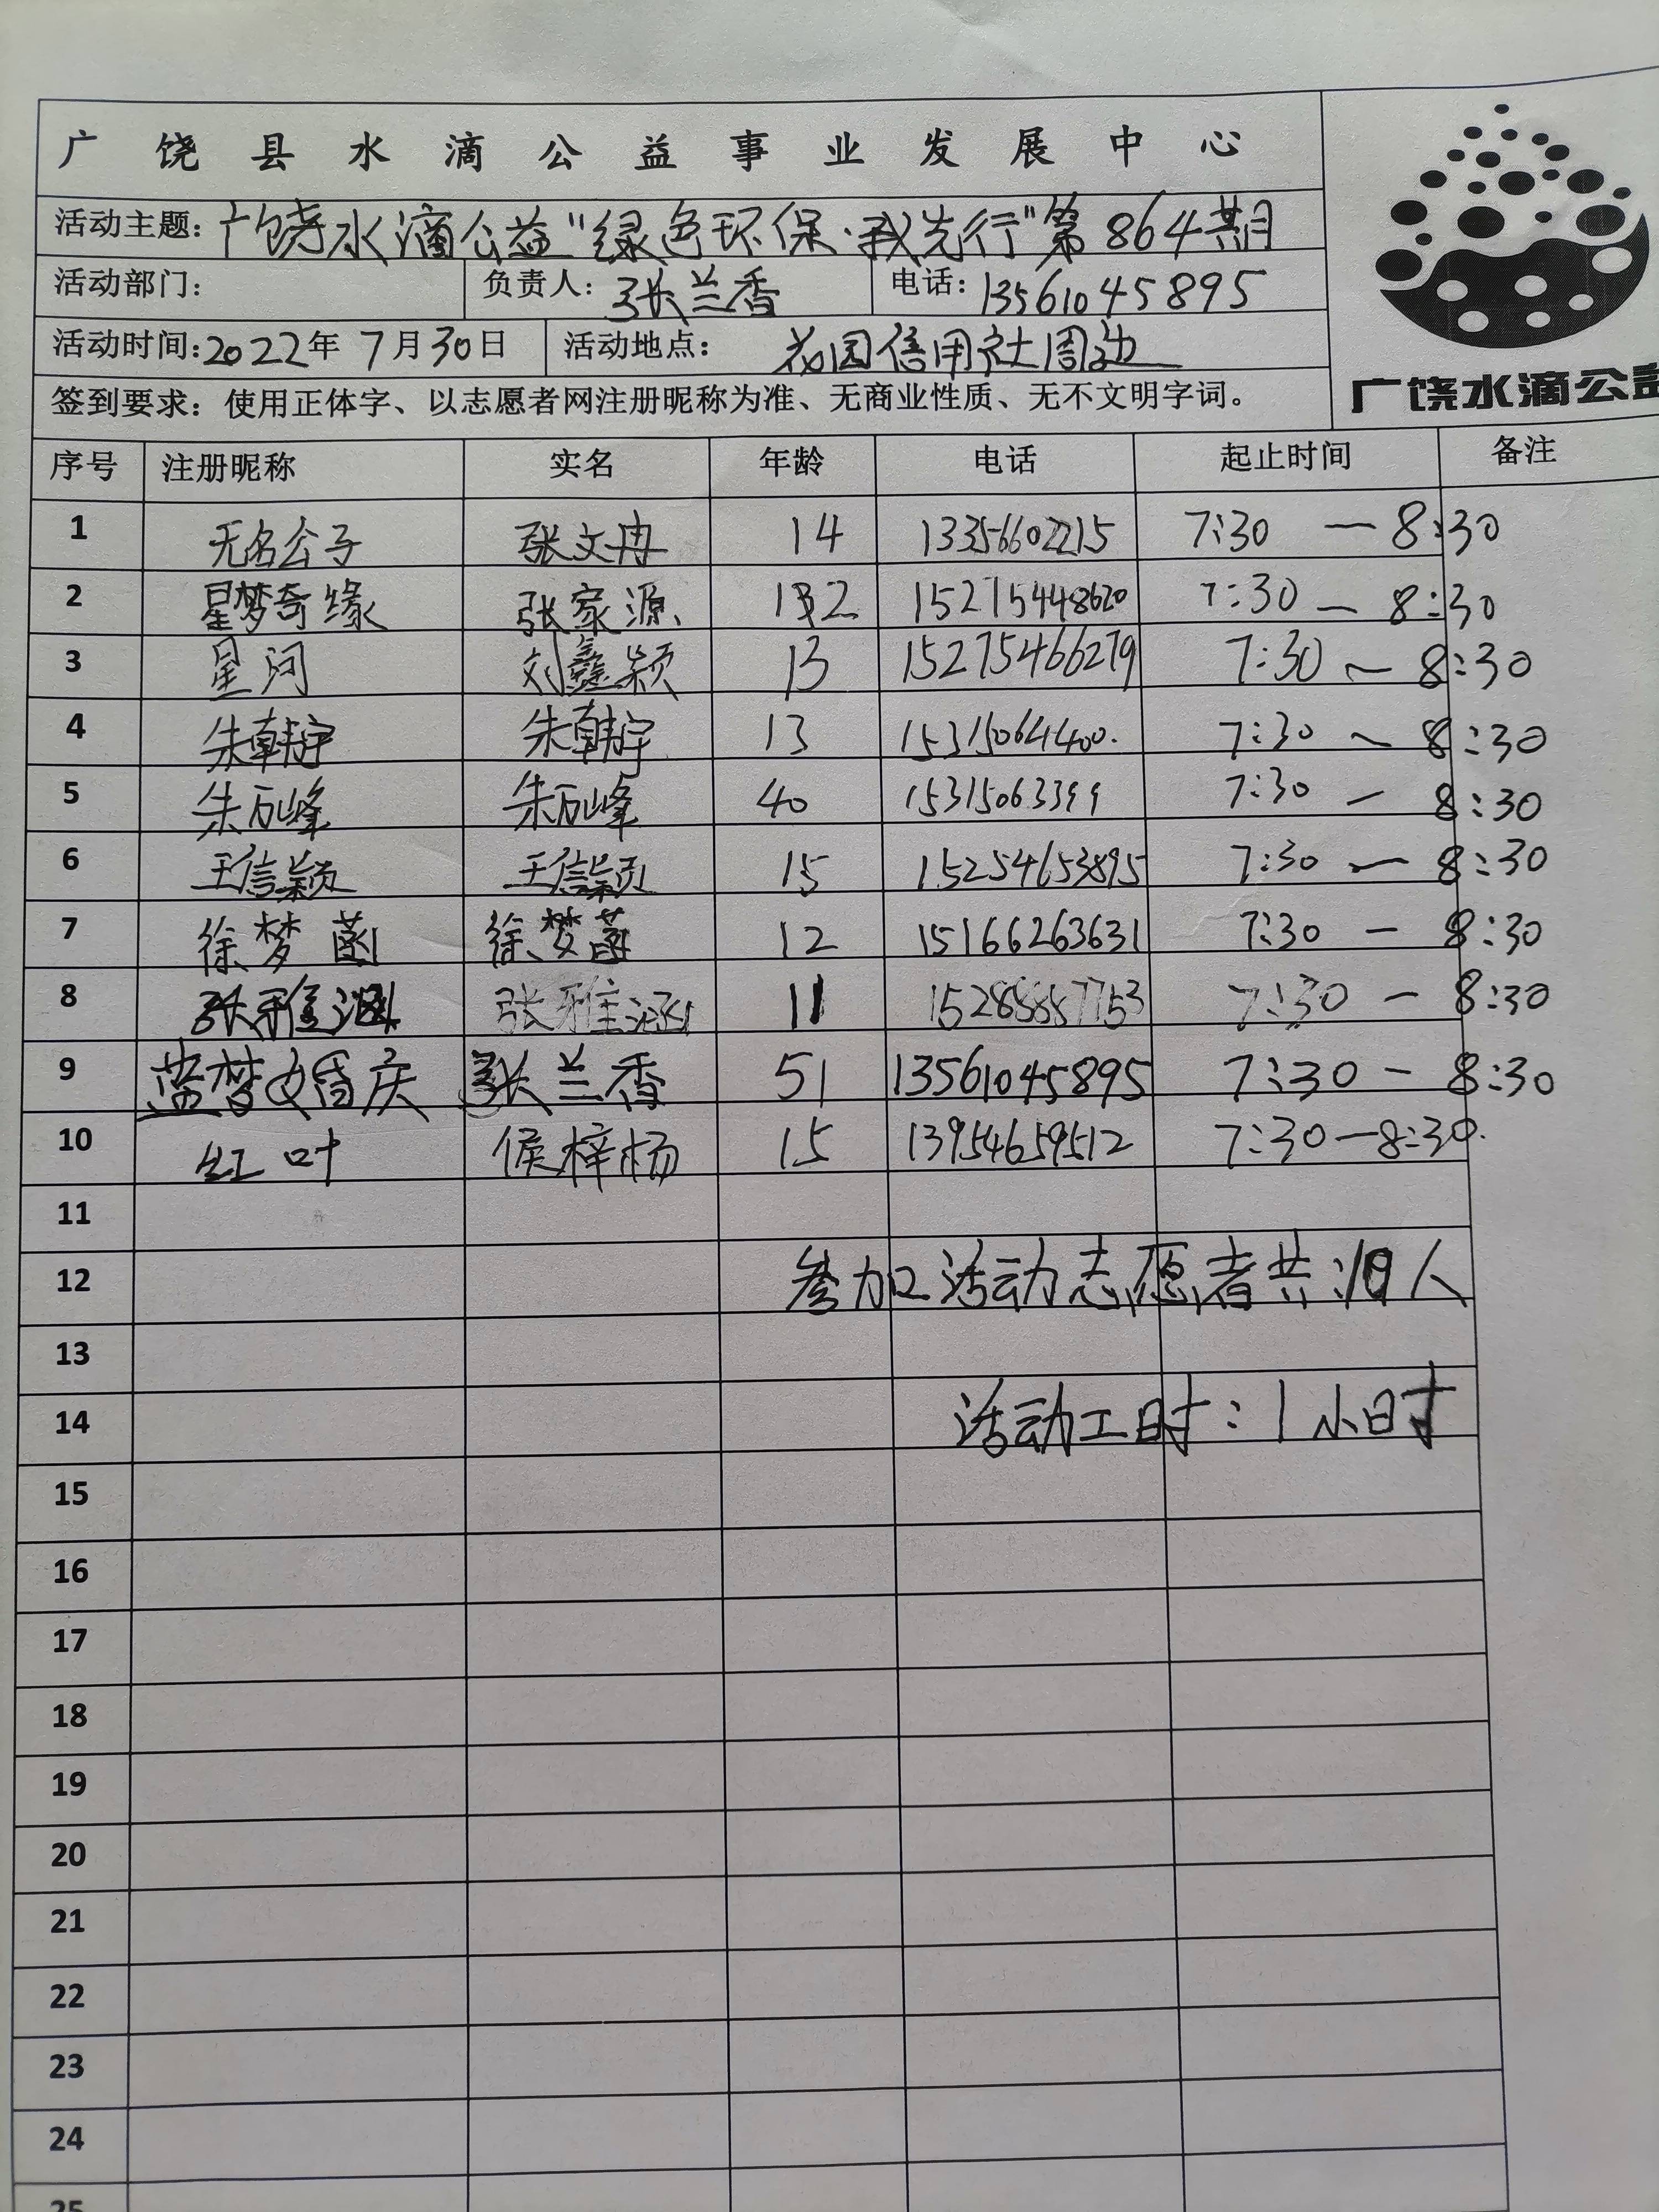 广饶县水滴公益事业发展中心
活动主题：广饶水滴公益"绿色环保·我先行"第864期
活动部门： 负责人：张兰香 电话：13561045895
活动时间：2022年7月30日 活动地点：花园信用社周边
签到要求：使用正体字、以志愿者网注册昵称为准、无商业性质、无不文明字词。
广饶水滴公益
序号 注册昵称 实名 年龄 电话 起止时间 备注
1 无名公子 张文冉 14 13356602215 7:30 — 8:30
2 星梦奇缘 张家源 12 15275448620 7:30 — 8:30
3 星河 刘鑫颖 13 15275466279 7:30 ~ 8:30
4 朱韩宇 朱韩宇 13 15315064400. 7:30 ~ 8:30
5 朱万峰 朱万峰 40 15315063399 7:30 — 8:30
6 王信颖 王信颖 15 15254653895 7:30 — 8:30
7 徐梦菡 徐梦菡 12 15166263631 7:30 — 8:30
8 张雅涵 张雅涵 11 15288887753 7:30 — 8:30
9 蓝梦婚庆 张兰香 51 13561045895 7:30 — 8:30
10 红叶 侯梓杨 15 13954659512 7:30—8:30.
11
12 参加活动志愿者共:10人
13
14 活动工时：1小时
15
16
17
18
19
20
21
22
23
24
25